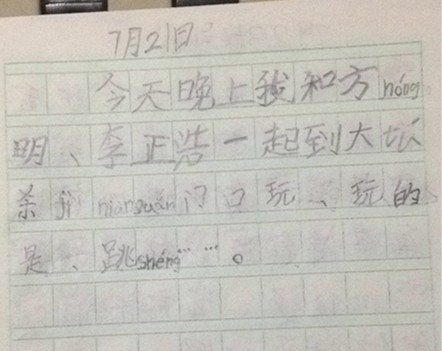 7月21日
今天晚上我和方hóng
明、李正浩一起到大坛
杀jì niànguǎn门口玩、玩的
是、跳shéng……。